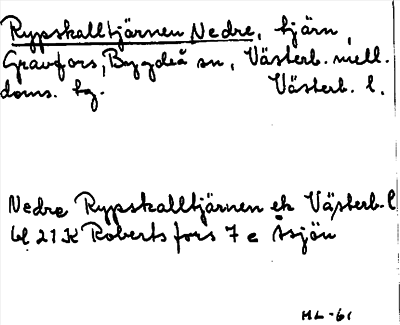 Rypskalltjärnen Nedre, tjärn,
Gravfors, Bygdeå sn, Västerb. mell.
doms. hg. Västerb. l.
Nedre Rypskalltjärnen ek Västerb. l
bl 21 K Robertsfors 7 e Åsjön
HL-61